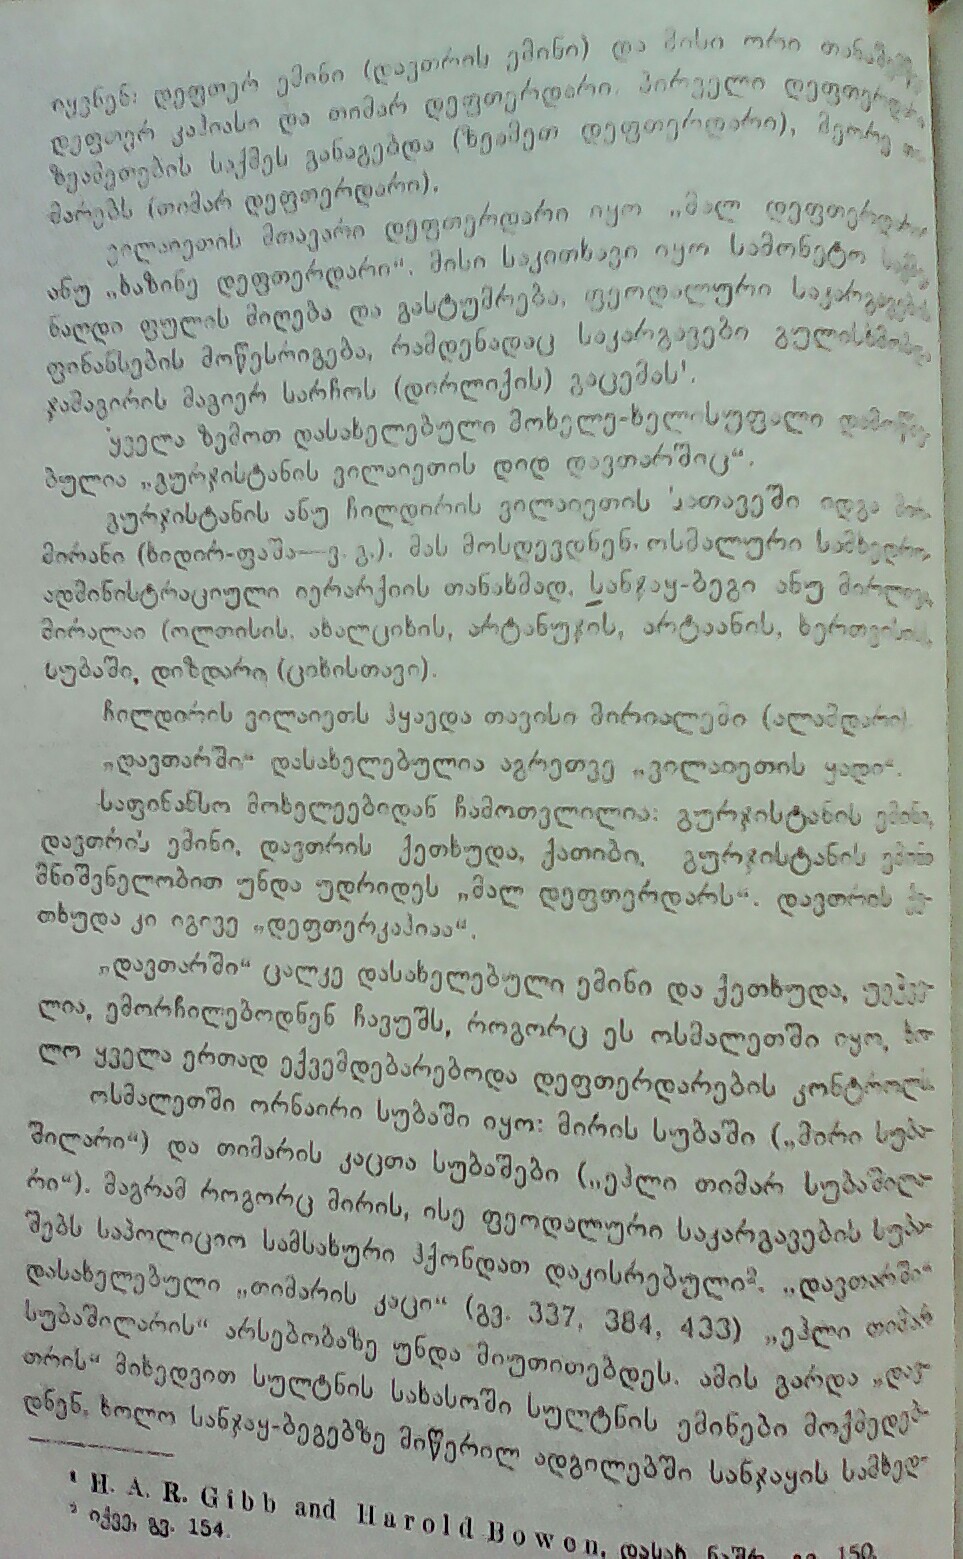 იყვნენ: დეფთერ ემინი (დავთრის ემინი) და მისი ორი
დეფთერ კაჰიასი და თიმარ დეფთერდარი. პირველი დეფთერდარი
ზეამეთების საქმეს განაგებდა (ზეამეთ დეფთერდარი), მეორე თი-
მარებს (თიმარ დეფთერდარი).
ვილაიეთის მთავარი დეფთერდარი იყო „მალ დეფთერდარი
ანუ „ხაზინე დეფთერდარი“. მისი საკითხავი იყო სამონეტო საქმე
ნაღდი ფულის მიღება და გასტუმრება, ფეოდალური საკარგავების
ფინანსების მოწესრიგება, რამდენადაც საკარგავები გულისხმობდა
ჯამაგირის მაგიერ სარჩოს (დირლიქის) გაცემას¹.
ყველა ზემოთ დასახელებული მოხელე-ხელისუფალი დამოწმე-
ბულია „გურჯისტანის ვილაიეთის დიდ დავთარშიც“.
გურჯისტანის ანუ ჩილდირის ვილაიეთის სათავეში იდგა მირ-
მირანი (ხიდირ-ფაშა—ვ. გ.). მას მოსდევდნენ. ოსმალური სამხედრო-
ადმინისტრაციული იერარქიის თანახმად, სანჯაყ-ბეგი ანუ მირლივა,
მირალაი (ოლთისის, ახალციხის, არტანუჯის, არტაანის, ხერთვისის),
სუბაში, დიზდარი (ციხისთავი).
ჩილდირის ვილაიეთს ჰყავდა თავისი მირიალემი (ალამდარი).
„დავთარში“ დასახელებულია აგრეთვე „ვილაიეთის ყადი“.
საფინანსო მოხელეებიდან ჩამოთვლილია: გურჯისტანის ემინი,
დავთრის ემინი, დავთრის ქეთხუდა, ქათიბი, გურჯისტანის ემინი
მნიშვნელობით უნდა უდრიდეს „მალ დეფთერდარს“. დავთრის ქე-
თხუდა კი იგივე „დეფთერკაჰიაა“.
„დავთარში“ ცალკე დასახელებული ემინი და ქეთხუდა, უეჭვე-
ლია, ემორჩილებოდნენ ჩავუშს, როგორც ეს ოსმალეთში იყო, ხო-
ლო ყველა ერთად ექვემდებარებოდა დეფთერდარების კონტროლს.
ოსმალეთში ორნაირი სუბაში იყო: მირის სუბაში („მირი სუბა-
შილარი“) და თიმარის კაცთა სუბაშები („ეჰლი თიმარ სუბაშილა-
რი“). მაგრამ როგორც მირის, ისე ფეოდალური საკარგავების სუბა-
შებს საპოლიციო სამსახური ჰქონდათ დაკისრებული². „დავთარში“
დასახელებული „თიმარის კაცი“ (გვ. 337, 384, 433) „ეჰლი თიმარ
სუბაშილარის“ არსებობაზე უნდა მიუთითებდეს. ამის გარდა „დავ-
თრის“ მიხედვით სულტნის სახასოში სულტნის ემინები მოქმედებ-
დნენ, ხოლო სანჯაყ-ბეგებზე მიწერილ ადგილებში სანჯაყის სამხედ-
¹ H. A. R. Gibb and Harold Bowon, დასახ. ნაშრ., გვ. 150.
² იქვე, გვ. 154.